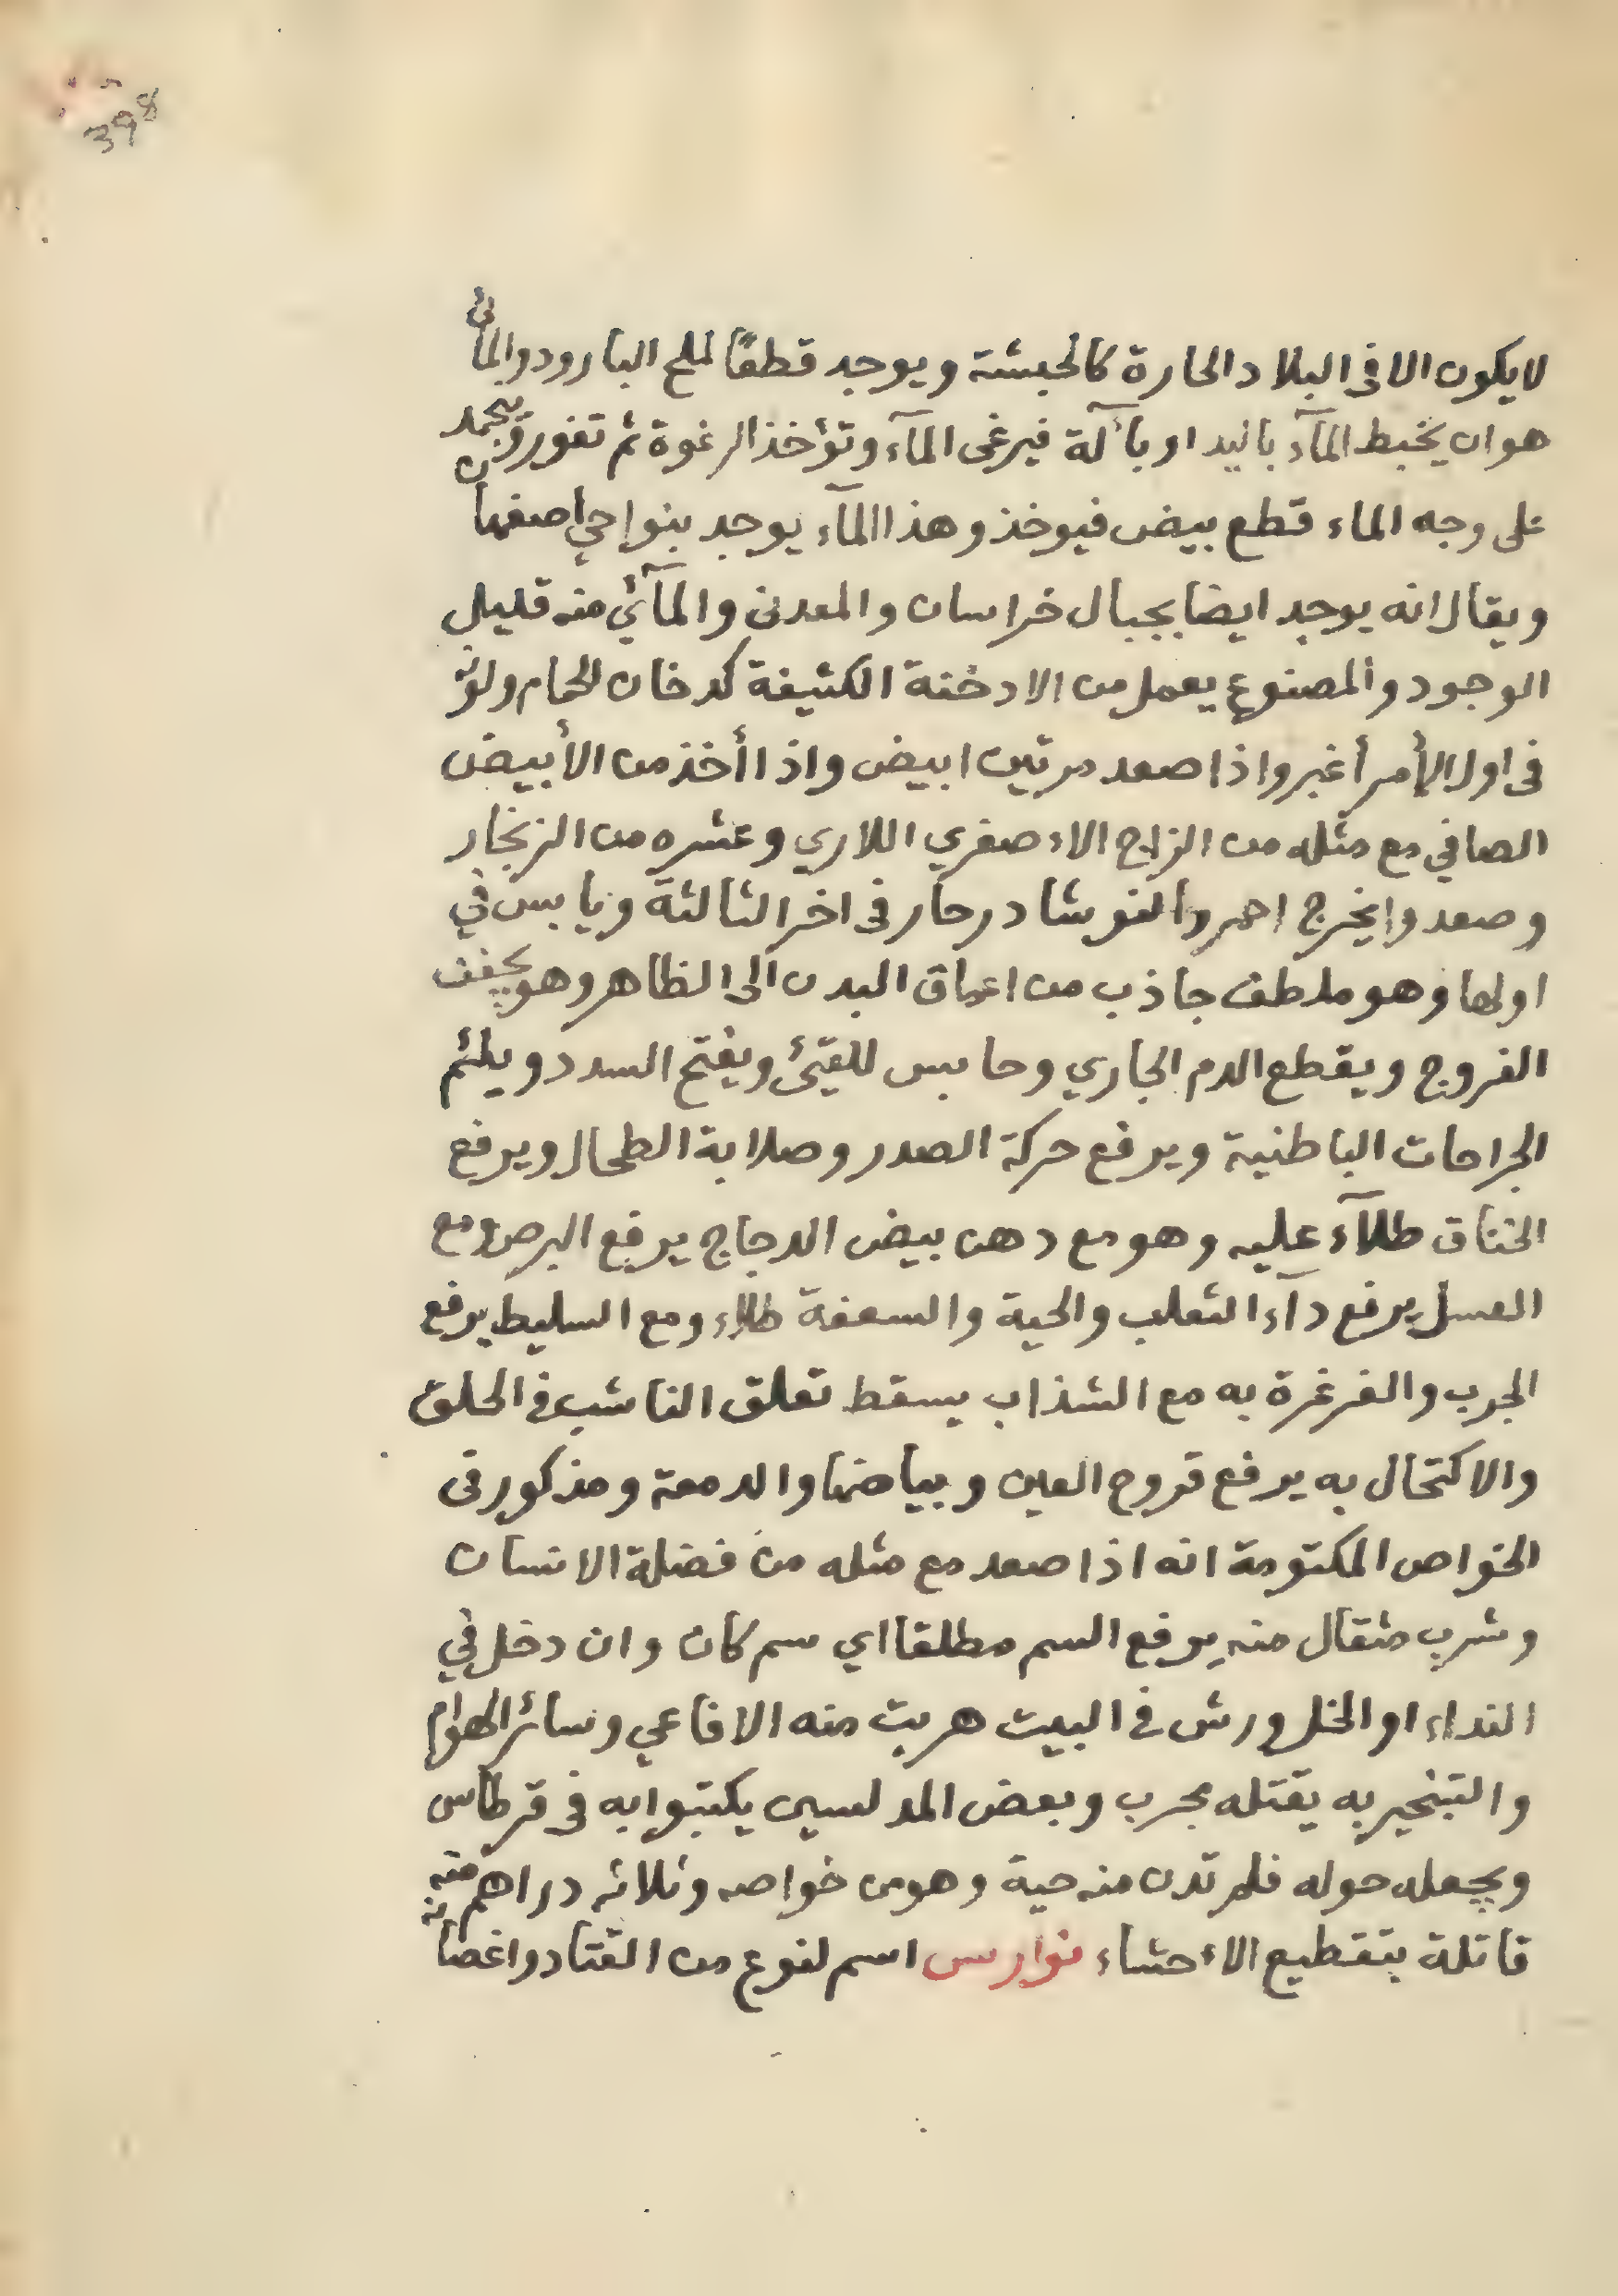 398
لا يكون الا فى البلاد الحارة كالحبشة ويوجد قطعًا لملح البارود والمائى
هو ان يخبط المآء باليد او بآلة فيرغى المآء وتؤخذ الرغوة ثم تفور ويجمد
على وجه الماء قطع بيض فيوخذ وهذا المآء يوجد بنواحي اصفهان
ويقال انه يوجد ايضا بجبال خراسان والمعدنى والمآئي منه قليل
الوجود والمصنوع يعمل من الادخنة الكثيفة كدخان الحمام ولونه
فى اول الأمر أغبر واذا صعد مرتين ابيض واذا أخذ من الأبيض
الصافي مع مثله من الزاج الاصفري اللاري وعشره من الزنجار
وصعدوا يخرج احمر والنوشادر حار فى اخر الثالثة ويابس في
اولها وهو ملطف جاذب من اعماق البدن الى الظاهر وهو يجفف
القروح ويقطع الدم الجاري وحابس للقيئ ويفتح السدد ويلئم
الجراحات الباطنية ويرفع حركة الصدر وصلابة الطحال ويرفع
الخناق طلآء عليه وهو مع دهن بيض الدجاج يرفع البرص ومع
العسل يرفع دآء الثعلب والحية والسعفة طلاء ومع السليط يرفع
الجرب والغرغرة به مع الشذاب يسقط تعلق الناشب فى الحلق
والاكتحال به يرفع قروح العين وبياضها والدمعة ومذكور فى
الخواص المكتومة انه اذا صعد مع مثله من فضلة الانسان
وشرب مثقال منه يرفع السم مطلقا اي سم كان وان دخل في
النداء او الخل ورش فى البيت هربت منه الافاعي وسائر الهوام
والتبخير به يقتله مجرب وبعض المدلسين يكتبوا به فى قرطاس
ويجعله حوله فلم تدن منه حية وهو من خواصه وثلاثه دراهم منه
قاتلة بتقطيع الاحشاء نوارس اسم لنوع من القتاد واغصانه